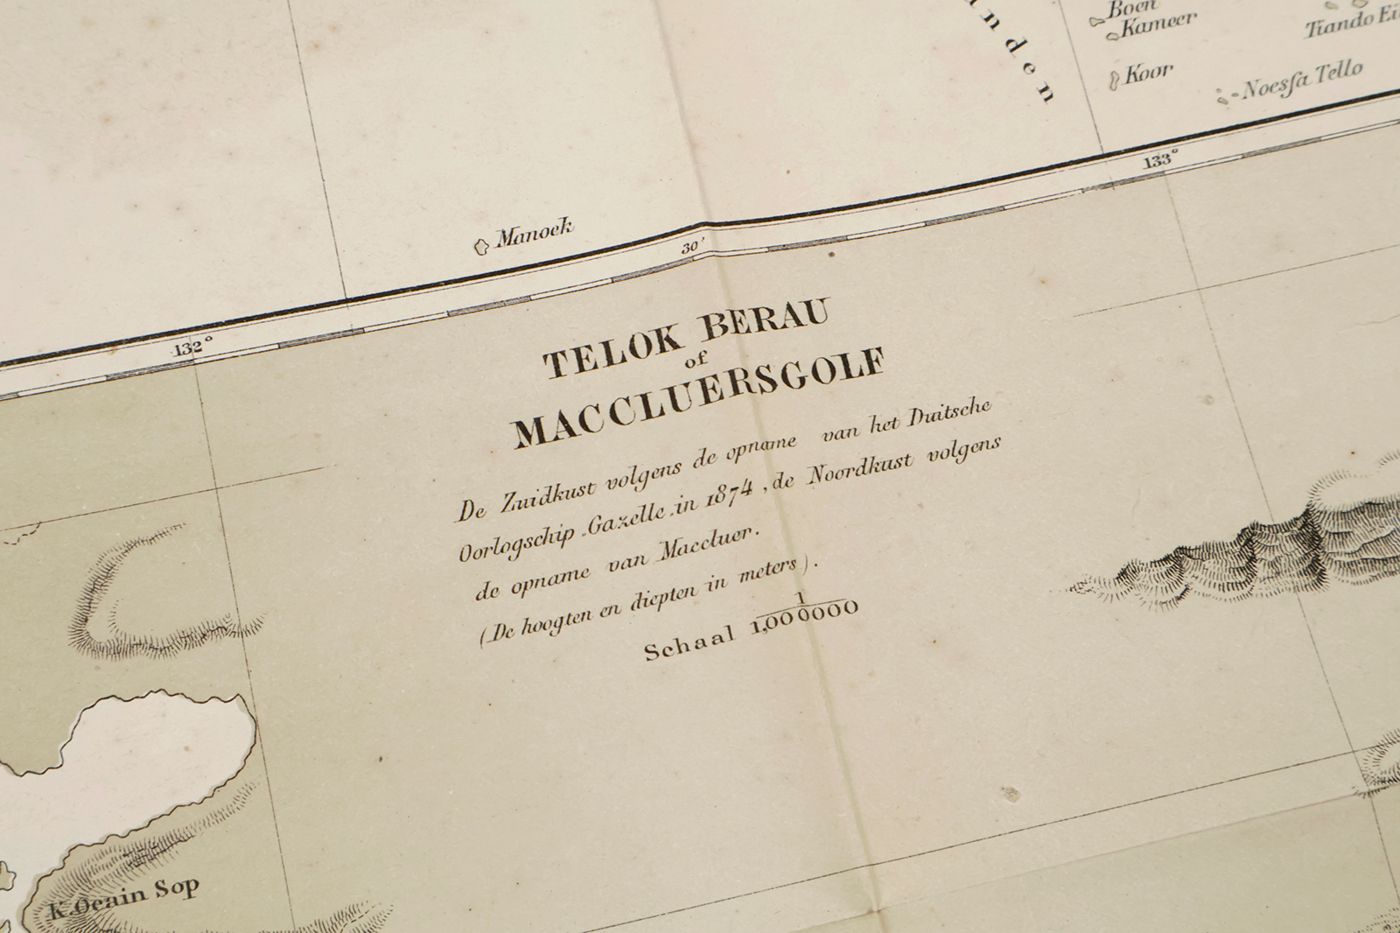 Boen
Kameer
Tiando
Koor
Noessa Tello
nden
133°
Manoek
30'
132°
TELOK BERAU
of
MACCLUERSGOLF
De Zuidkust volgens de opname van het Duitsche
Oorlogschip Gazelle in 1874, de Noordkust volgens
de opname van Maccluer.
(De hoogten en diepten in meters).
Schaal 1/1,000000
K. Ocain Sop